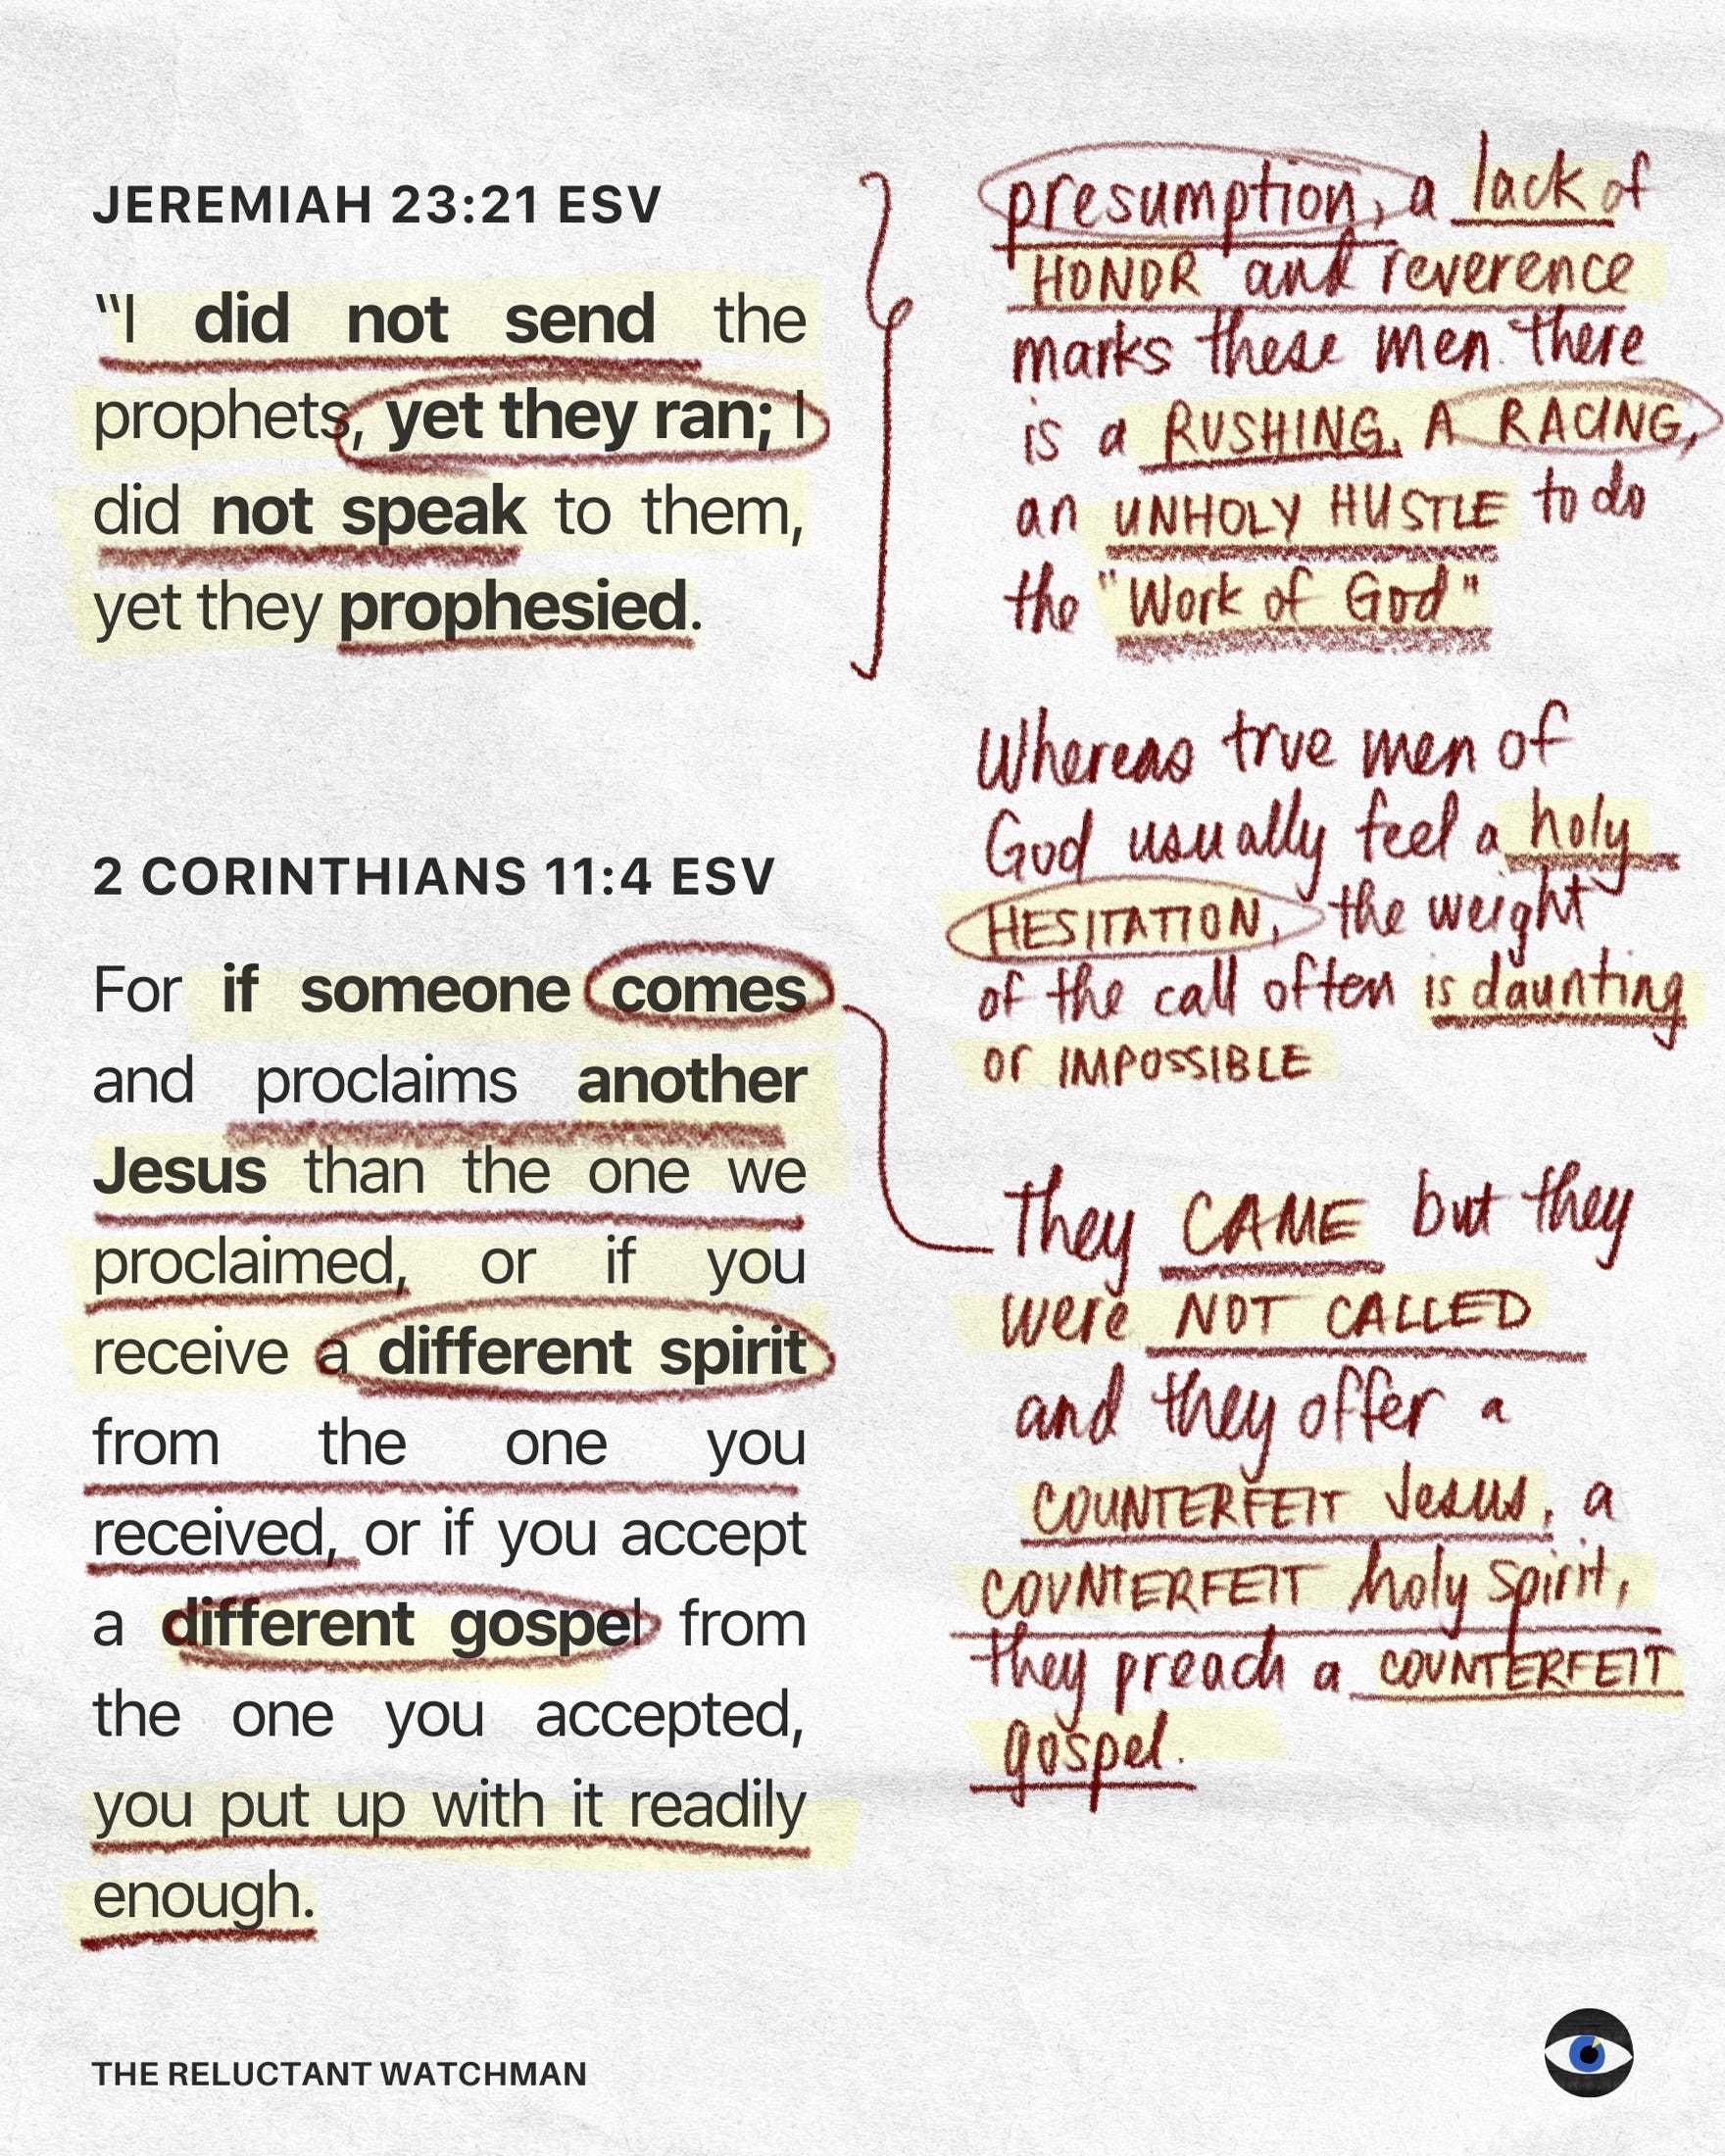 JEREMIAH 23:21 ESV
“I did not send the
prophets, yet they ran; I
did not speak to them,
yet they prophesied.
presumption, a lack of
HONOR and reverence
marks these men. there
is a RUSHING, A RACING,
an UNHOLY HUSTLE to do
the "Work of God"
Whereas true men of
God usually feel a holy
HESITATION, the weight
of the call often is daunting
or IMPOSSIBLE
2 CORINTHIANS 11:4 ESV
For if someone comes
and proclaims another
Jesus than the one we
proclaimed, or if you
receive a different spirit
from the one you
received, or if you accept
a different gospel from
the one you accepted,
you put up with it readily
enough.
They CAME but they
were NOT CALLED
and they offer a
COUNTERFEIT Jesus, a
COUNTERFEIT holy spirit,
they preach a COUNTERFEIT
gospel.
THE RELUCTANT WATCHMAN